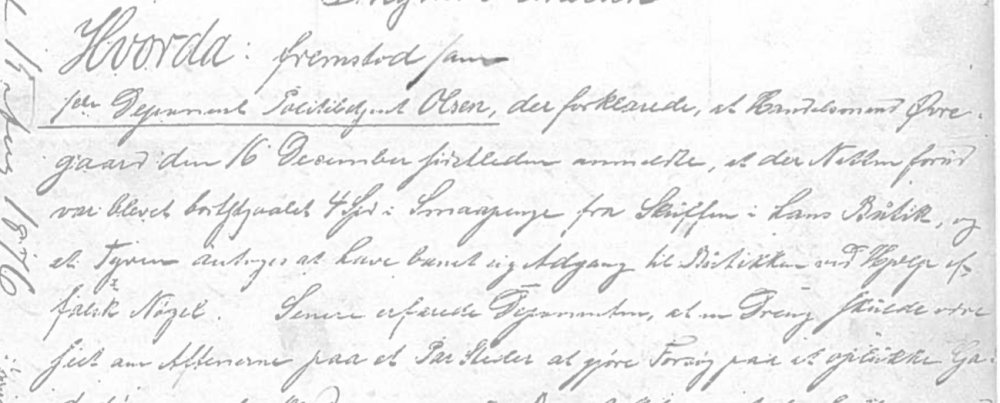 Hvorda: fremstod som
1ste Deponent Politibetjent Olsen, der forklarede, at Handelsmand Øvre-
gaard den 16 December sidstleden anmeldte, at der Natten forud
var blevet bortstjaalet 4 Spd i Smaapenge fra Skuffen i hans Butik, og
at Tyven antoges at have banet sig Adgang til Butikken ved Hjælp af
falsk Nøgel. Senere erfarede Deponenten, at en Dreng skulde være
seet om Aftenerne paa et Par Steder at gjøre Forsøg paa at oplukke Ga-